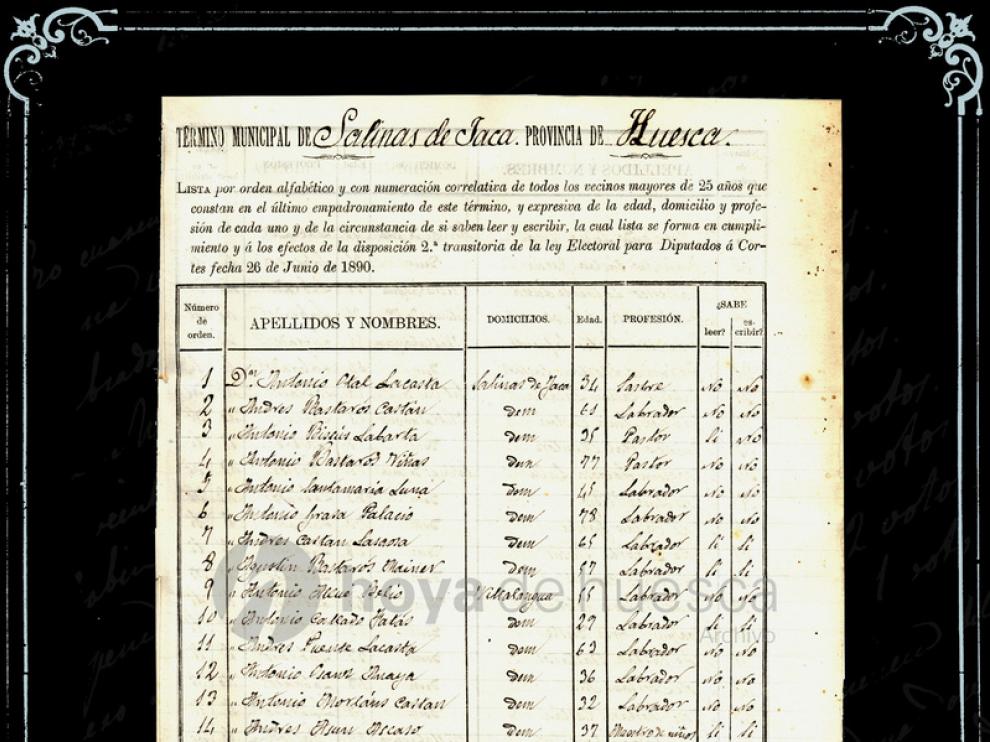 TÉRMINO MUNICIPAL DE Salinas de Jaca. PROVINCIA DE Huesca.
LISTA por orden alfabético y con numeración correlativa de todos los vecinos mayores de 25 años que
constan en el último empadronamiento de este término, y expresiva de la edad, domicilio y profe-
sión de cada uno y de la circunstancia de si saben leer y escribir, la cual lista se forma en cumpli-
miento y á los efectos de la disposición 2.ª transitoria de la ley Electoral para Diputados á Cor-
tes fecha 26 de Junio de 1890.
Número de orden. APELLIDOS Y NOMBRES. DOMICILIOS. Edad. PROFESIÓN. ¿SABE leer? es-cribir?
1 Dⁿ Antonio Otal Lacasta Salinas de Jaca 34 Sastre No No
2 " Andres Bastarós Castán Dem Labrador No No
3 " Antonio Biscús Labarta Dem 35 Pastor Si No
4 " Antonio Bastarós Viñas Dem 77 Pastor No No
5 " Antonio Santamaria Luna Dem 45 Labrador No No
6 " Antonio Grasa Palacio Dem 78 Labrador No No
7 " Andres Castan Lasaosa Dem 65 Labrador Si Si
8 " Agustin Bastarós Mainer Dem 57 Labrador Si Si
9 " Antonio Allué Villalangua 55 Labrador No No
10 " Antonio Dem 29 Labrador Si Si
11 " Andres Fuente Lacasta Dem 63 Labrador No No
12 " Antonio Dem 36 Labrador No No
13 " Antonio Morláns Castan Dem 32 Labrador No No
14 " Andres Ascaso Dem 37 Maestro de niños Si Si
hoya de huesca
Archivo